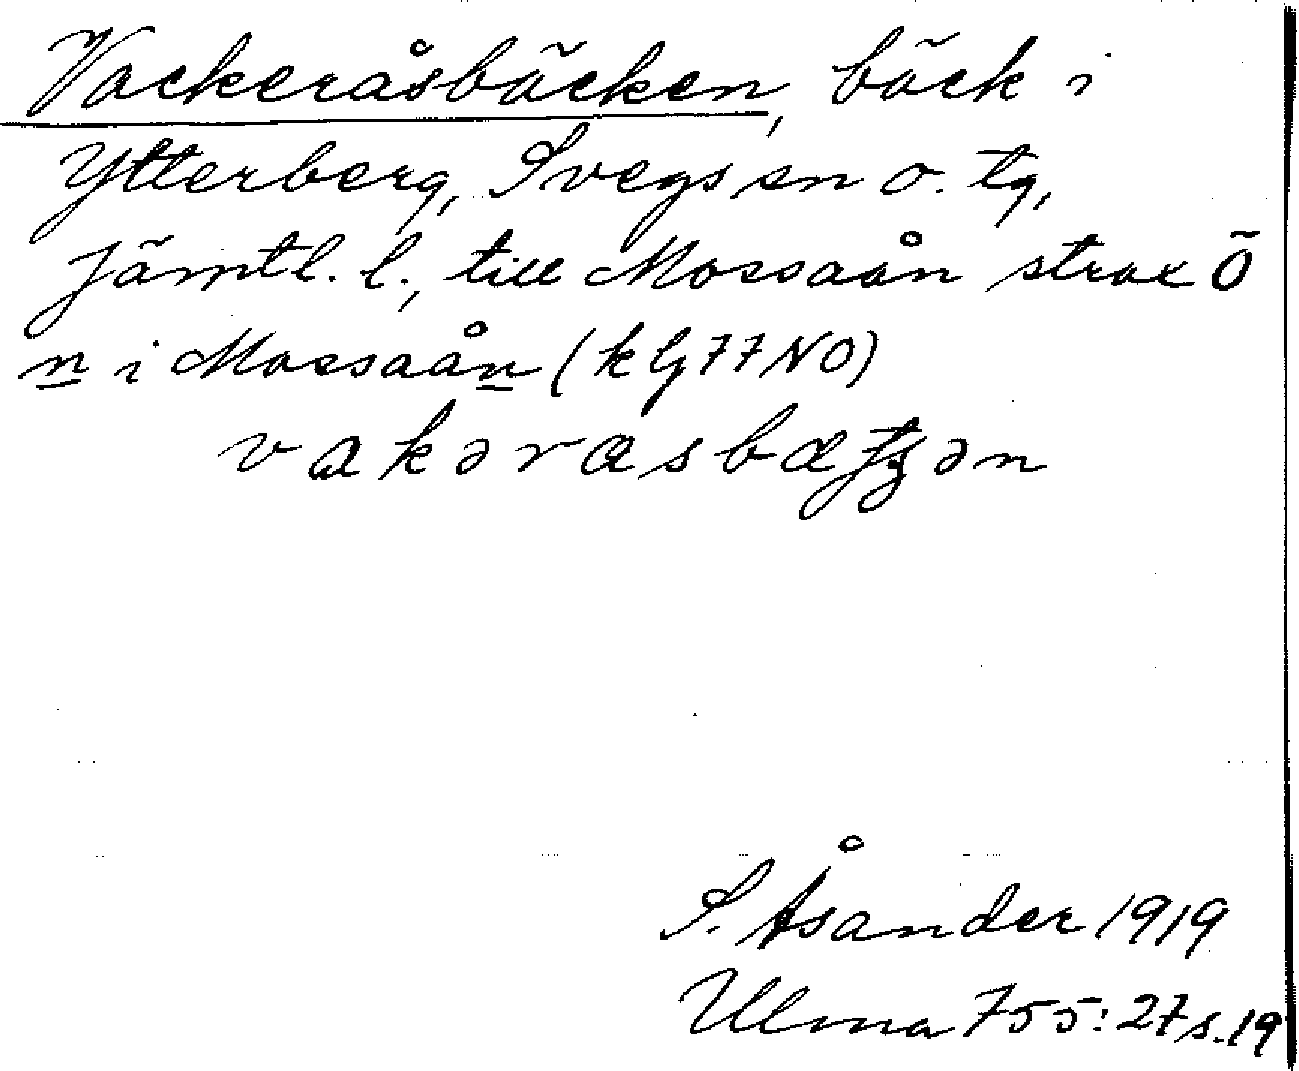 Vackeråsbäcken, bäck i
Ytterberg, Svegs sn o. tg,
Jämtl. l., till Mossaån strax Ö
n i Mossaån (k G77NO)
vakərasbætʂən
S. Åsander 1919
Ulma 755:27 s. 19